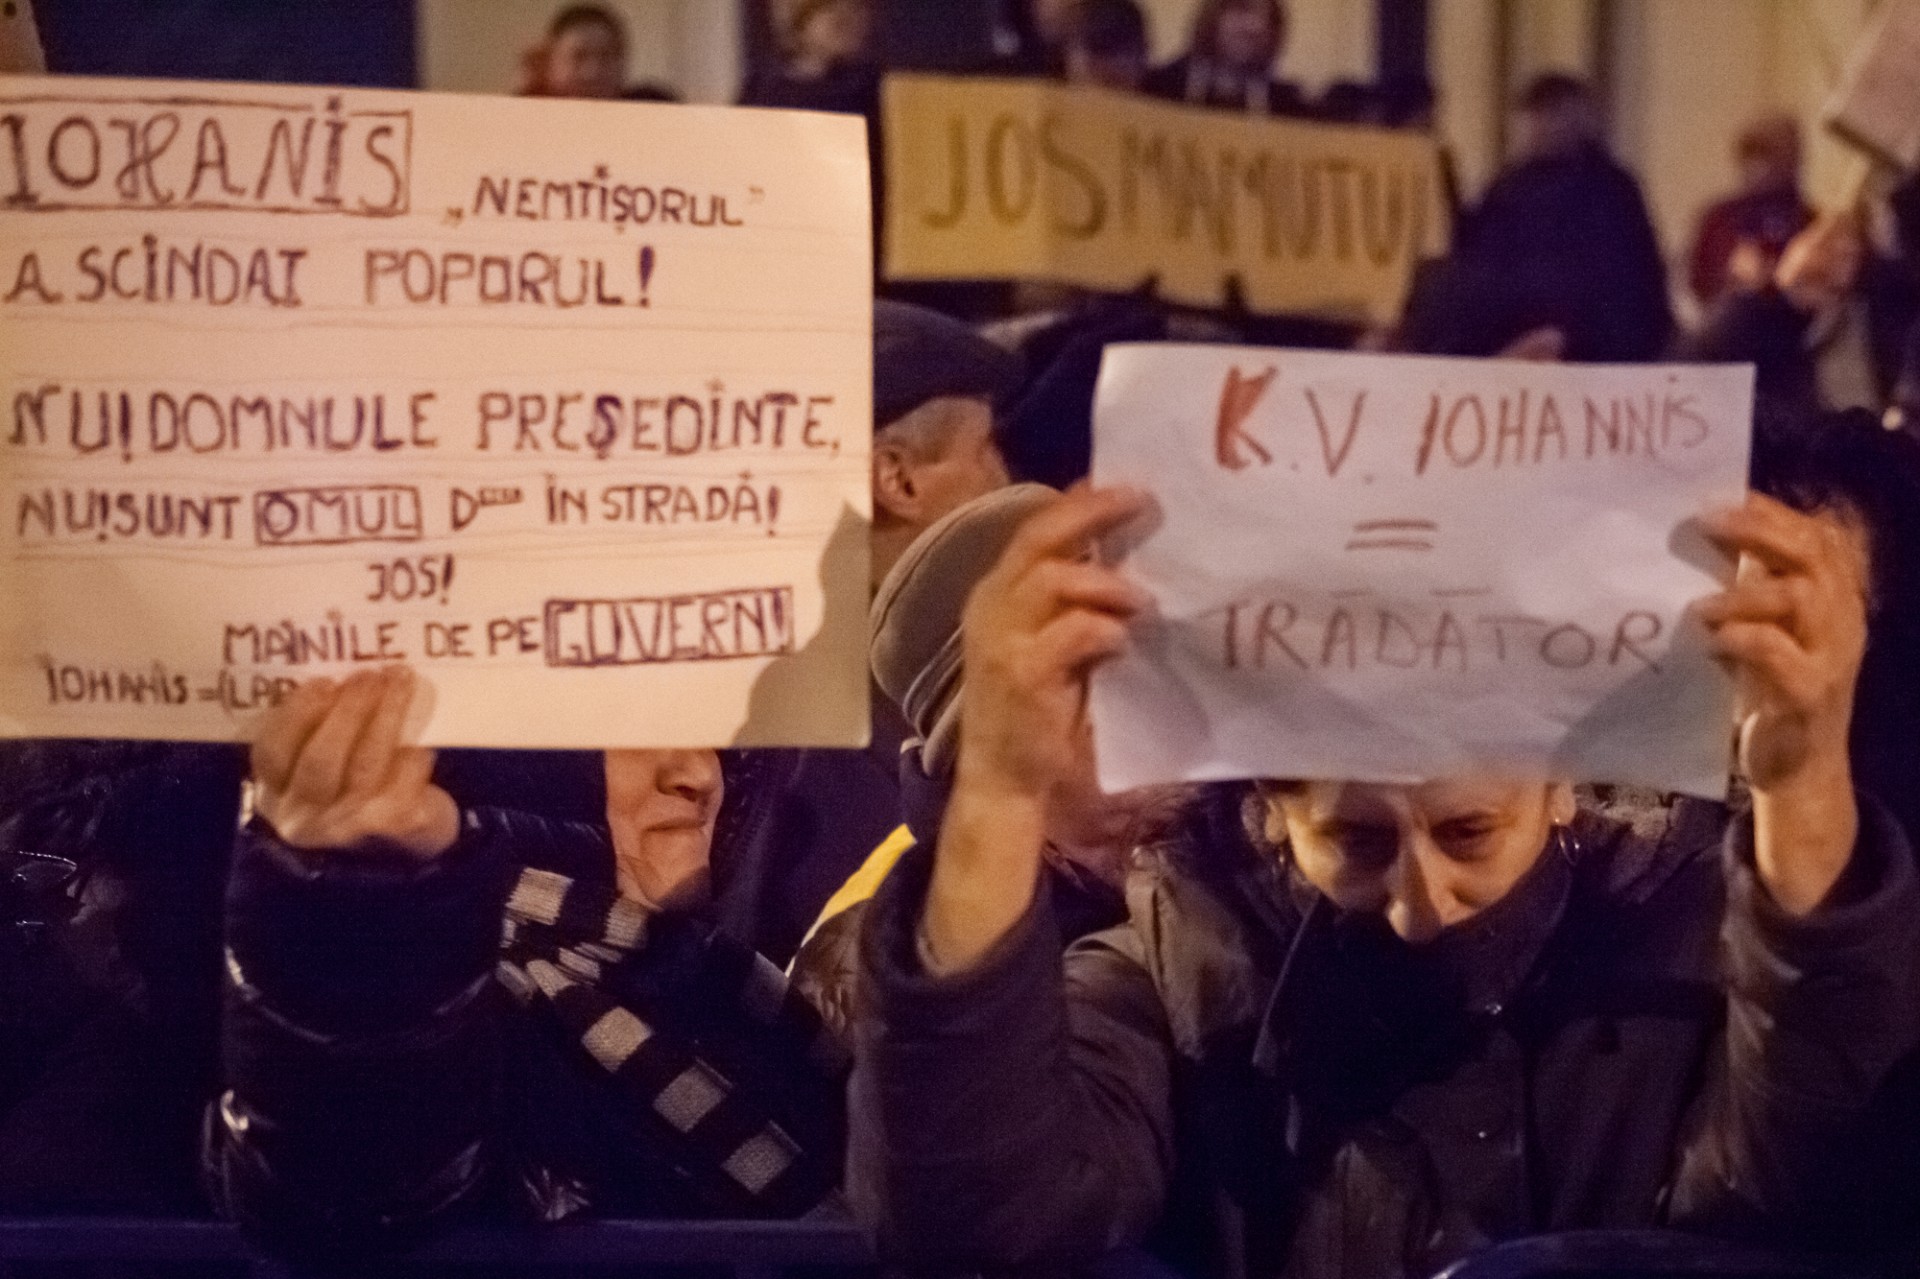 IOHANIS „NEMTIȘORUL”
A SCINDAT POPORUL!
NU! DOMNULE PREȘEDINTE,
NU! SUNT OMUL D ÎN STRADĂ!
JOS!
MAINILE DE PE GUVERN!
IOHANIS =(LPP
JOS MAMUTU
K.V. IOHANNIS
=
TRĂDĂTOR